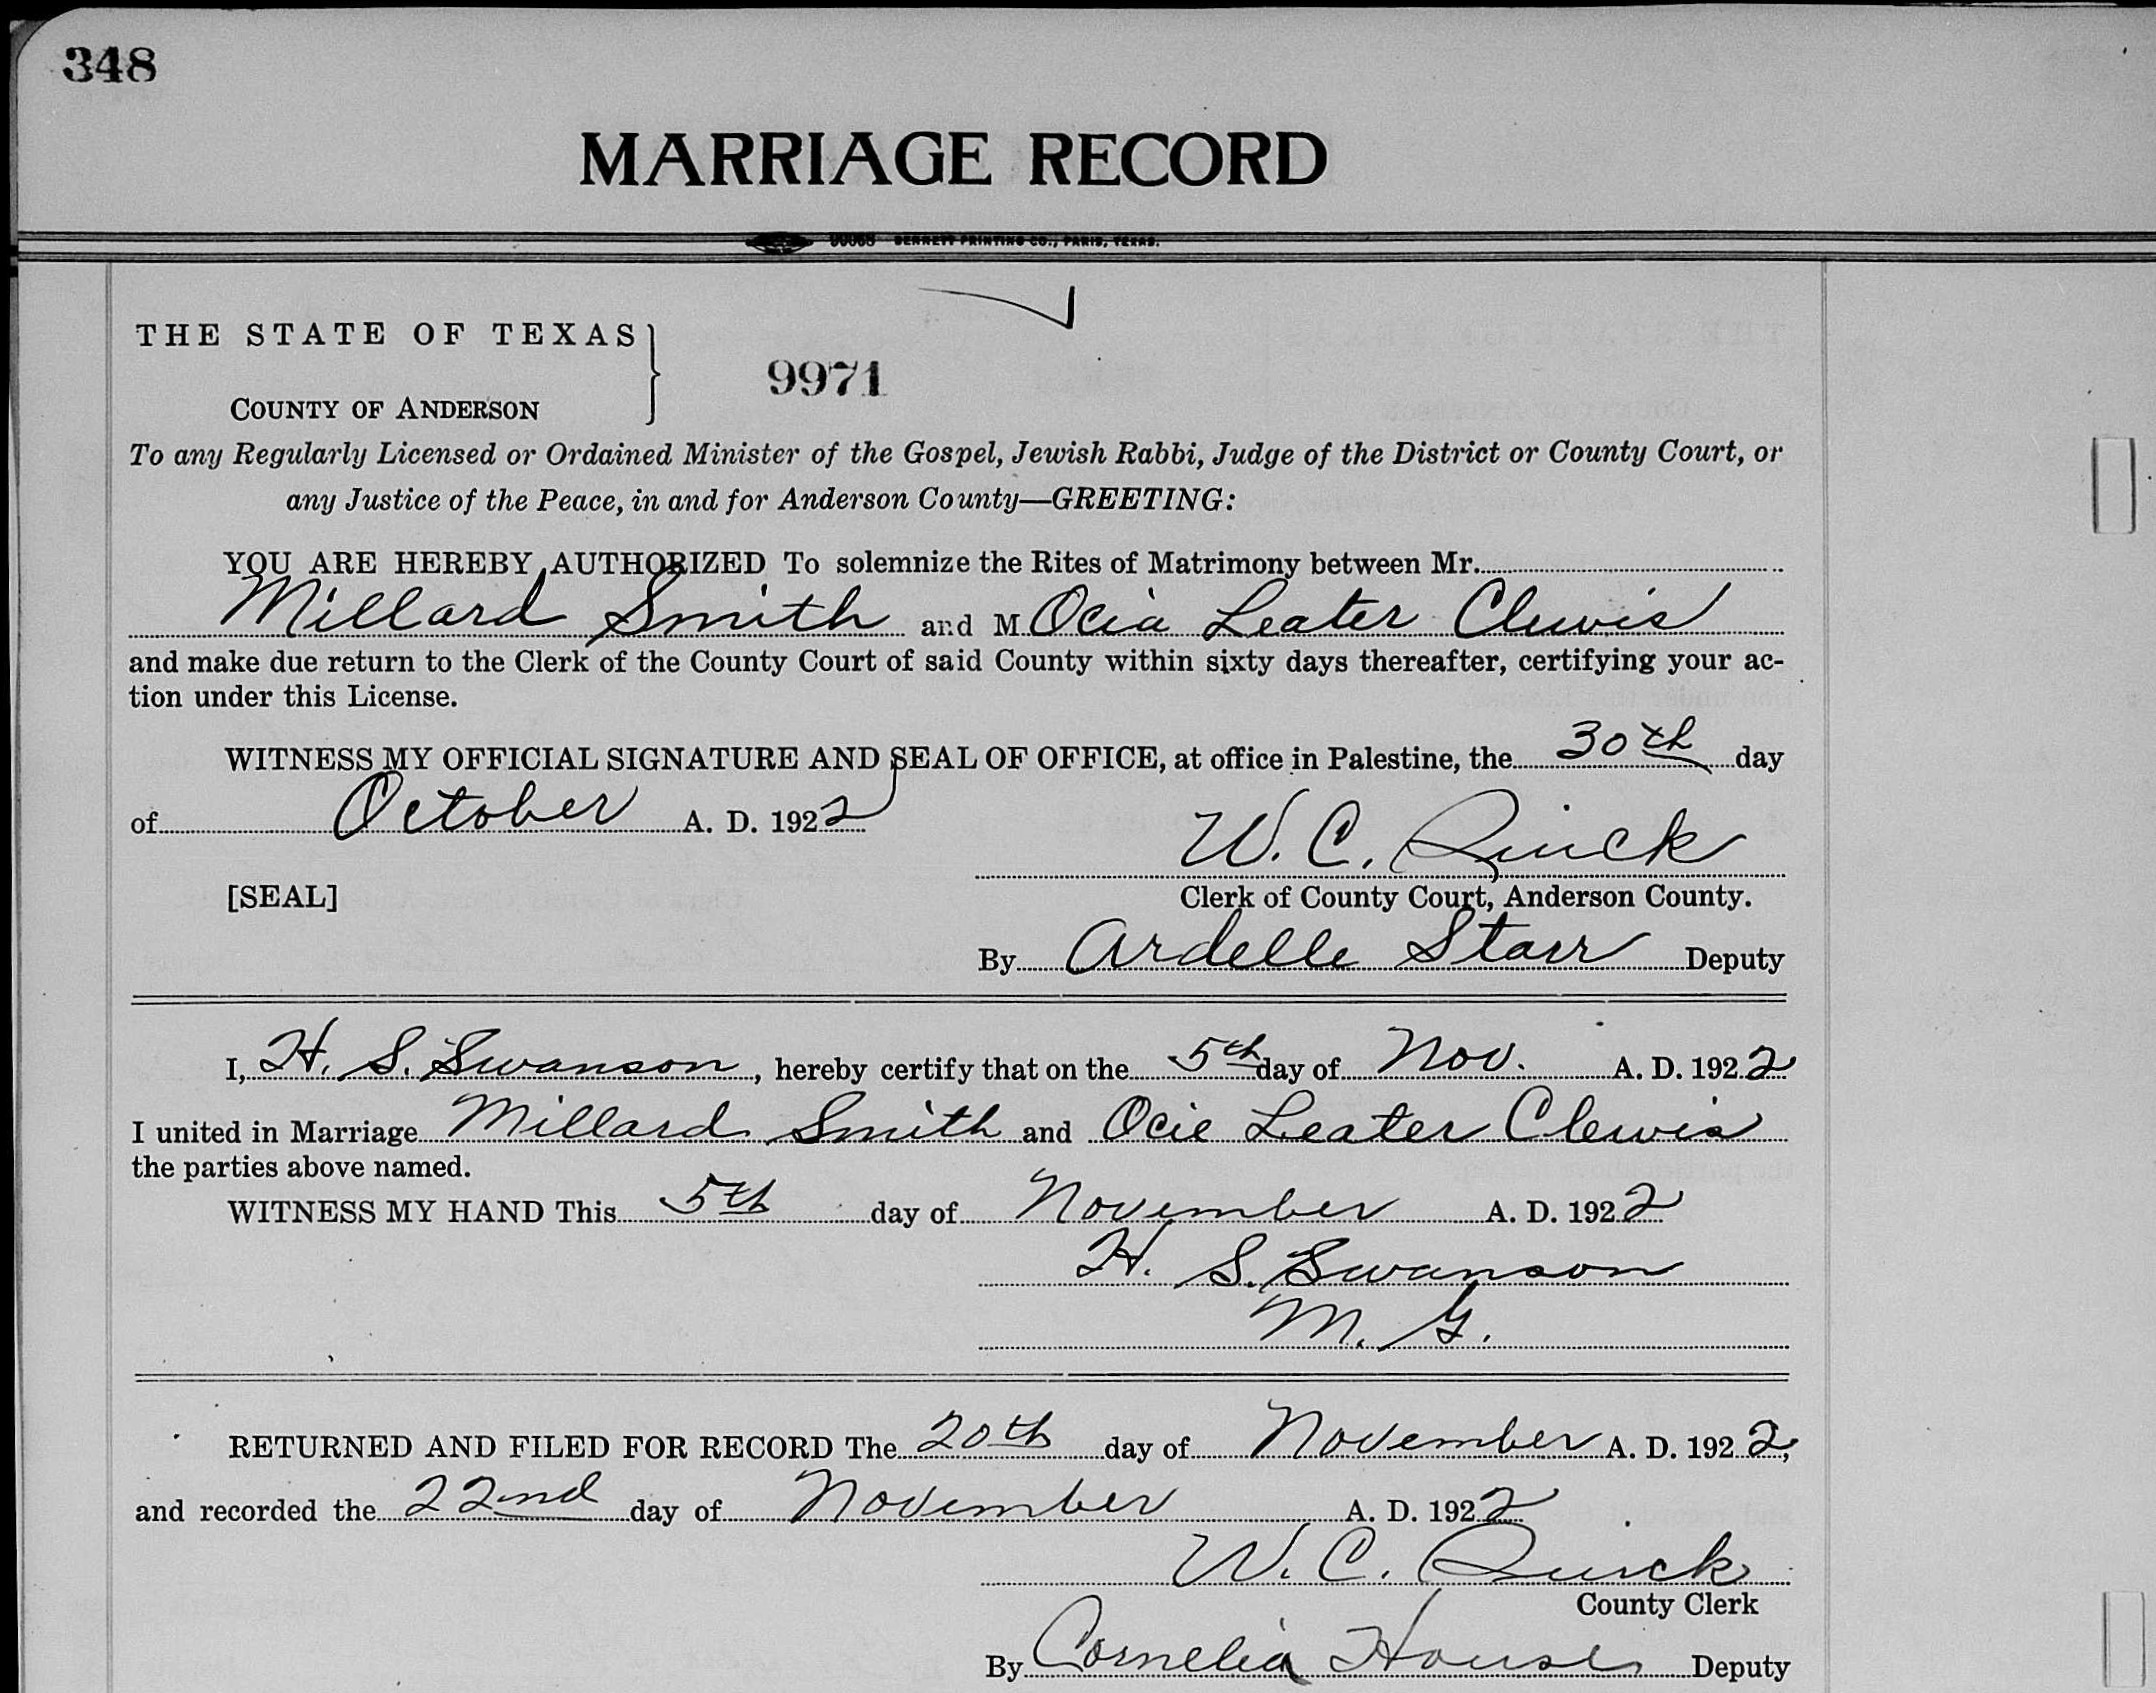 348
MARRIAGE RECORD
BENNETT PRINTING CO., PARIS, TEXAS.
THE STATE OF TEXAS
9971
COUNTY OF ANDERSON
To any Regularly Licensed or Ordained Minister of the Gospel, Jewish Rabbi, Judge of the District or County Court, or
any Justice of the Peace, in and for Anderson County—GREETING:
YOU ARE HEREBY AUTHORIZED To solemnize the Rites of Matrimony between Mr.
Millard Smith and M Ocia Leater Clewis
and make due return to the Clerk of the County Court of said County within sixty days thereafter, certifying your ac-
tion under this License.
WITNESS MY OFFICIAL SIGNATURE AND SEAL OF OFFICE, at office in Palestine, the 30th day
of October A. D. 1922
W. C. Quick
[SEAL] Clerk of County Court, Anderson County.
By Ardelle Starr Deputy
I, H. S. Swanson, hereby certify that on the 5th day of Nov. A. D. 1922
I united in Marriage Millard Smith and Ocie Leater Clewis
the parties above named.
WITNESS MY HAND This 5th day of November A. D. 1922
H. S. Swanson
M. G.
RETURNED AND FILED FOR RECORD The 20th day of November A. D. 1922,
and recorded the 22nd day of November A. D. 1922
W. C. Quick
County Clerk
By Cornelia House Deputy